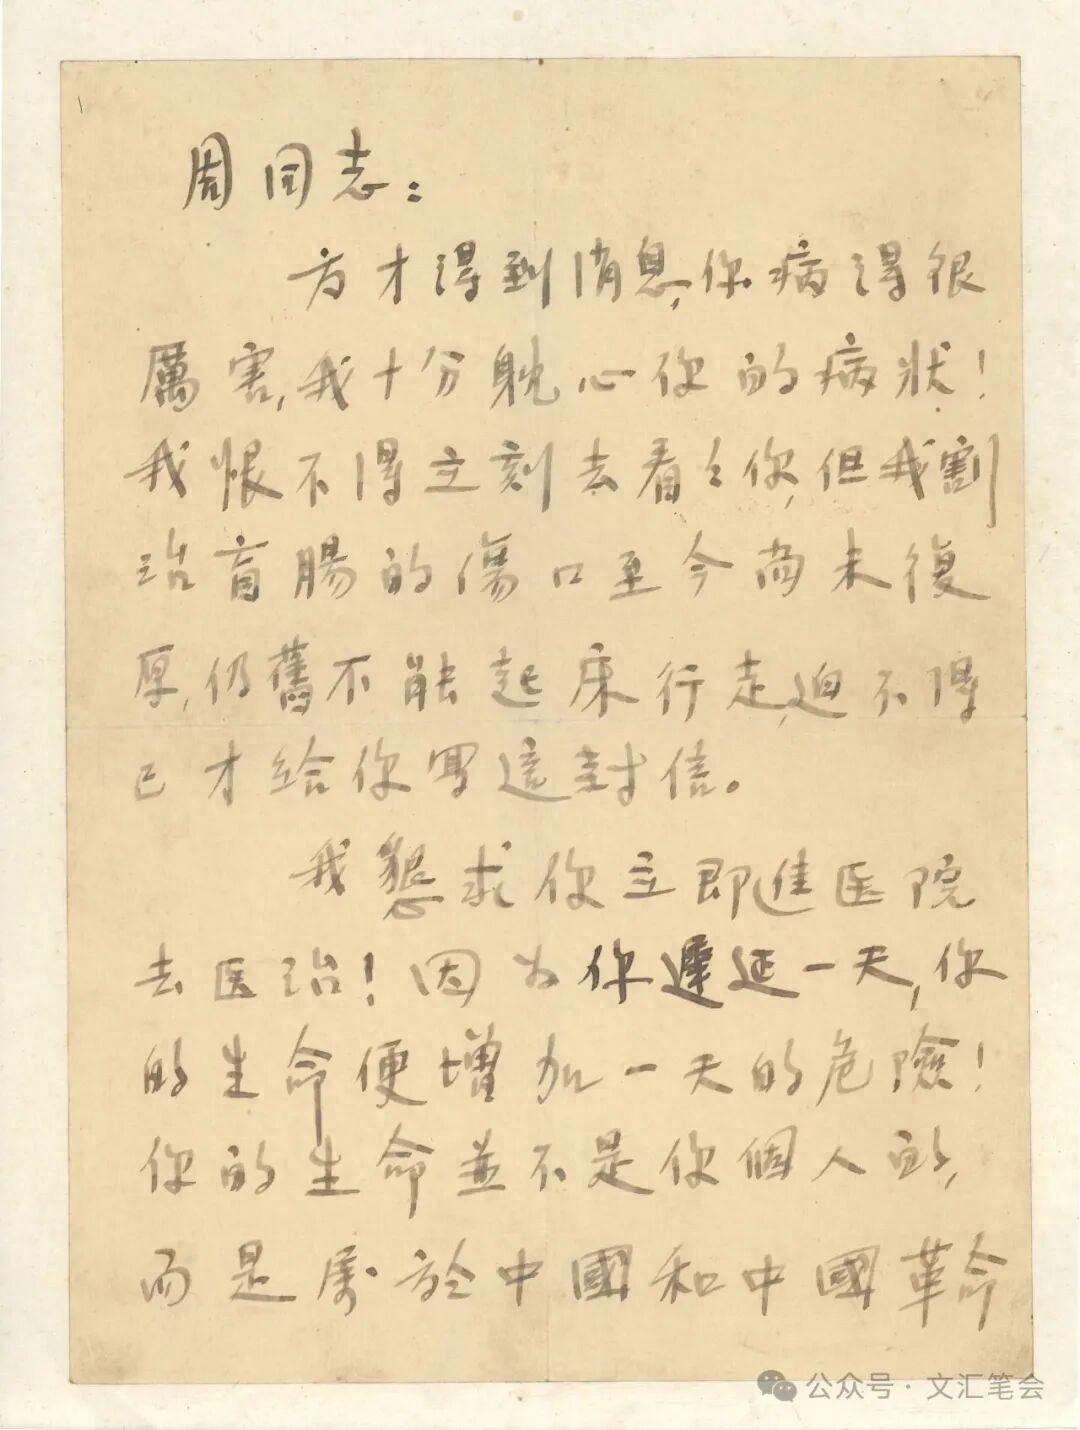 周同志：
方才得到消息,你病得很
厲害,我十分躭心你的病狀！
我恨不得立刻去看々你,但我割
治盲腸的傷口至今尚未復
原,仍舊不能起床行走,迫不得
已才给你寫這封信。
我懇求你立即進医院
去医治！因为你遲延一天,你
的生命便增加一天的危險！
你的生命並不是你個人的,
而是属於中國和中國革命
公众号·文汇笔会